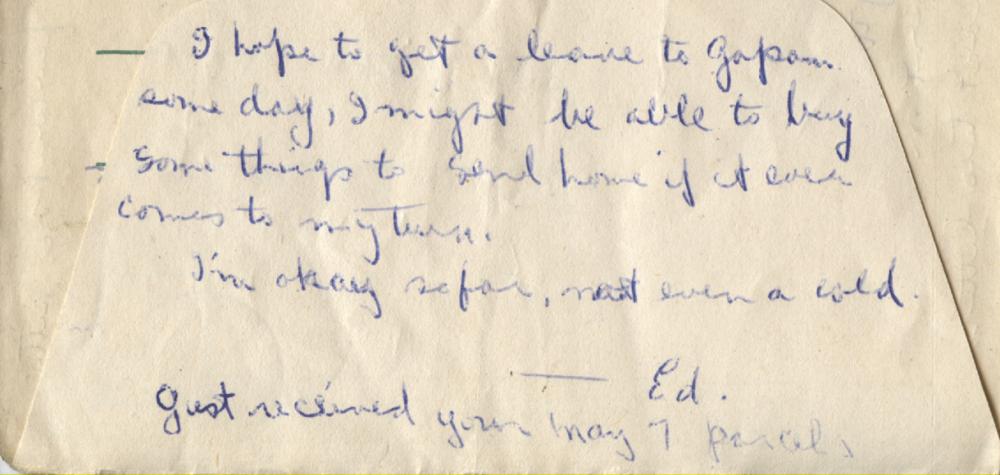 I hope to get a leave to Japan
some day, I might be able to buy
some things to send home if it ever
comes to my turn.
I'm okay so far, not even a cold.
— Ed.
Just received your May 7 parcel,